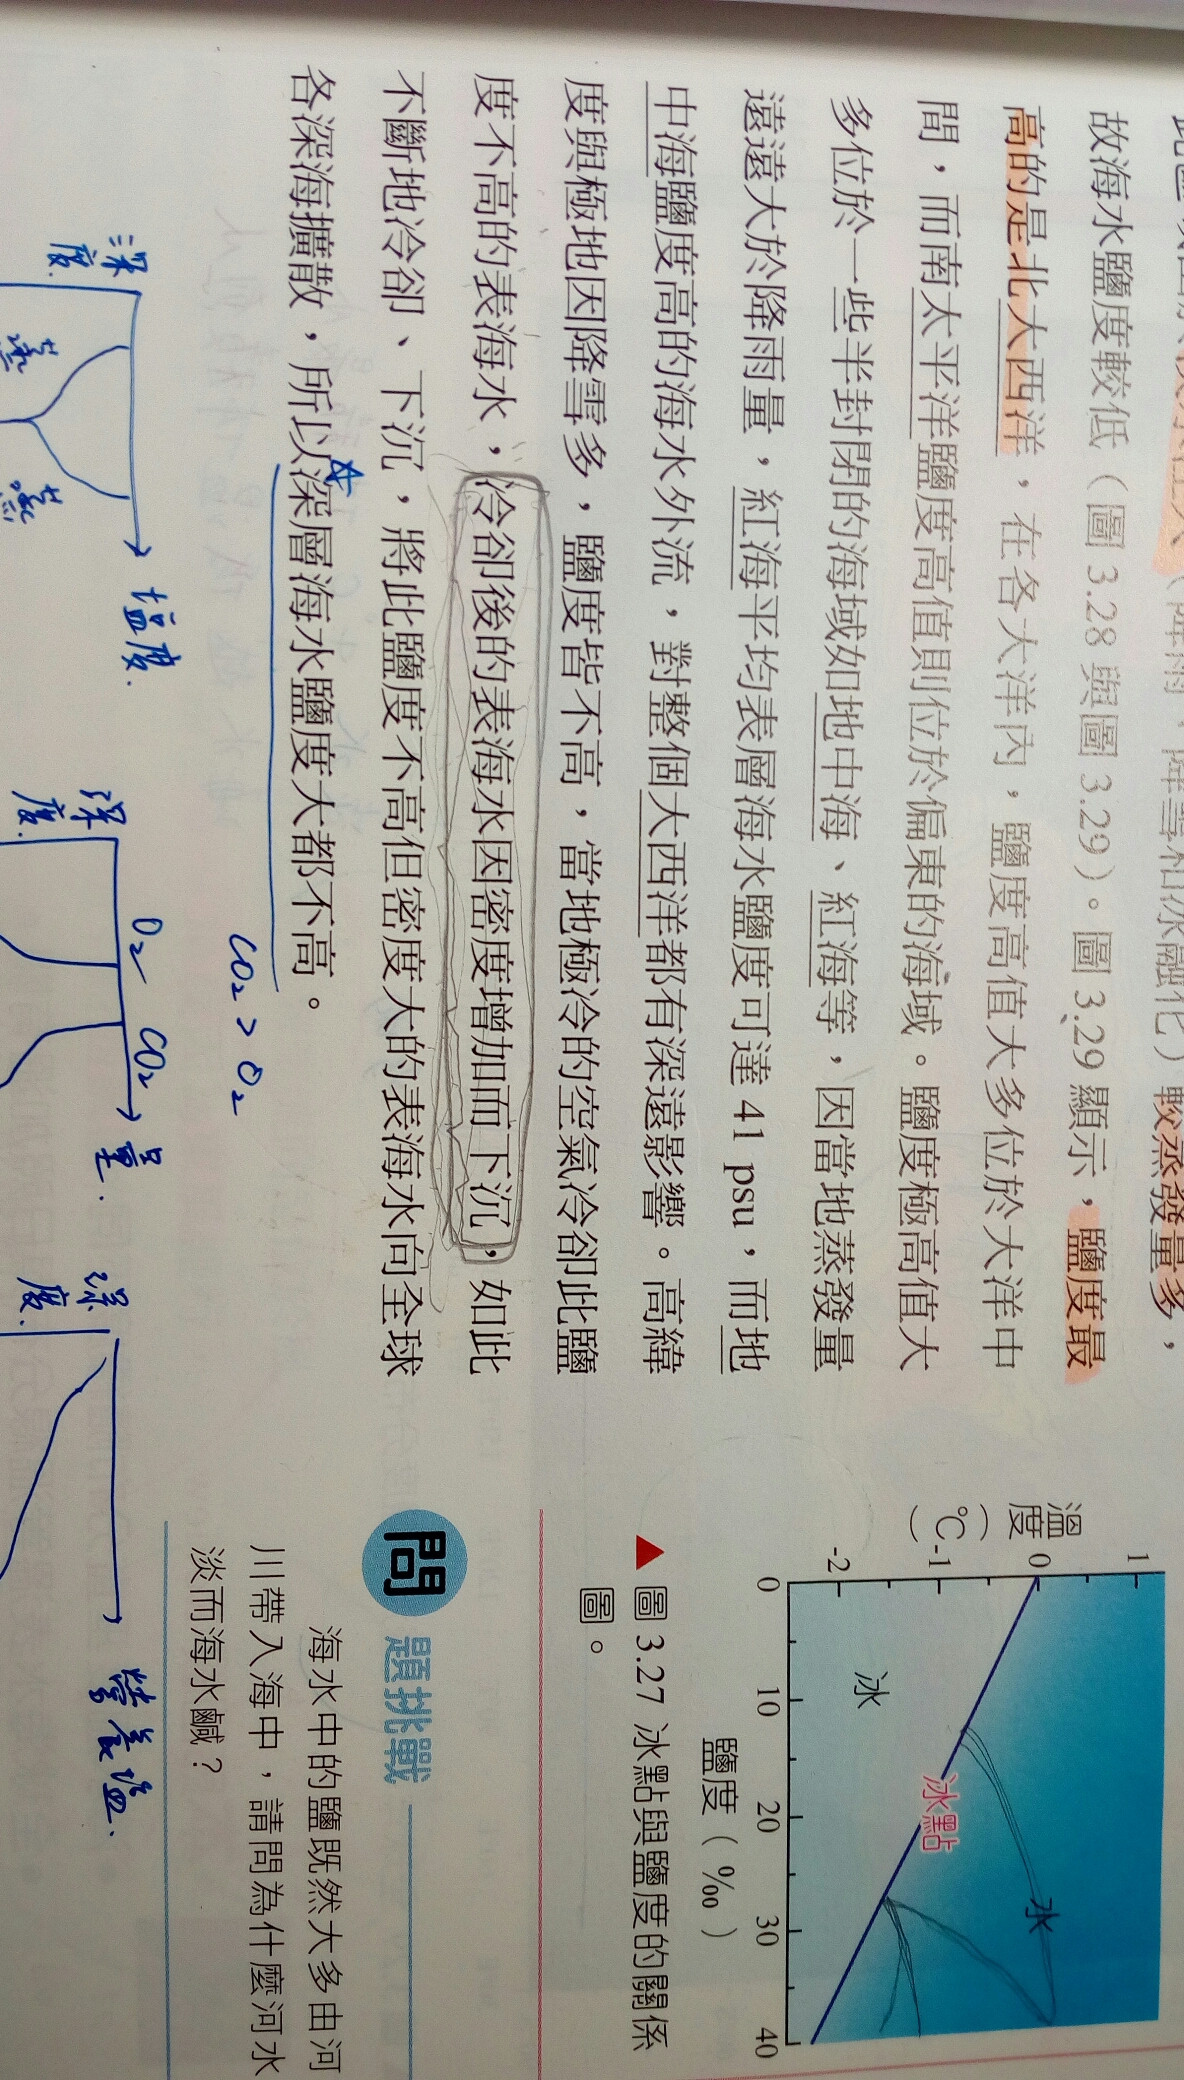 （降雨、降雪和冰融化）較蒸發量多，
故海水鹽度較低（圖 3.28 與圖 3.29）。圖 3.29 顯示，鹽度最
高的是北大西洋，在各大洋內，鹽度高值大多位於大洋中
間，而南太平洋鹽度高值則位於偏東的海域。鹽度極高值大
多位於一些半封閉的海域如地中海、紅海等，因當地蒸發量
遠遠大於降雨量，紅海平均表層海水鹽度可達 41 psu，而地
中海鹽度高的海水外流，對整個大西洋都有深遠影響。高緯
度與極地因降雪多，鹽度皆不高，當地極冷的空氣冷卻此鹽
度不高的表海水，冷卻後的表海水因密度增加而下沉，如此
不斷地冷卻、下沉，將此鹽度不高但密度大的表海水向全球
各深海擴散，所以深層海水鹽度大都不高。
CO₂ > O₂
深度
塩度
深度
O₂ CO₂
量
深度
營養塩
溫度（℃）
1
0
-1
-2
水
冰
冰點
0 10 20 30 40
鹽度（‰）
▲圖 3.27 冰點與鹽度的關係
圖。
問題挑戰
海水中的鹽既然大多由河
川帶入海中，請問為什麼河水
淡而海水鹹？